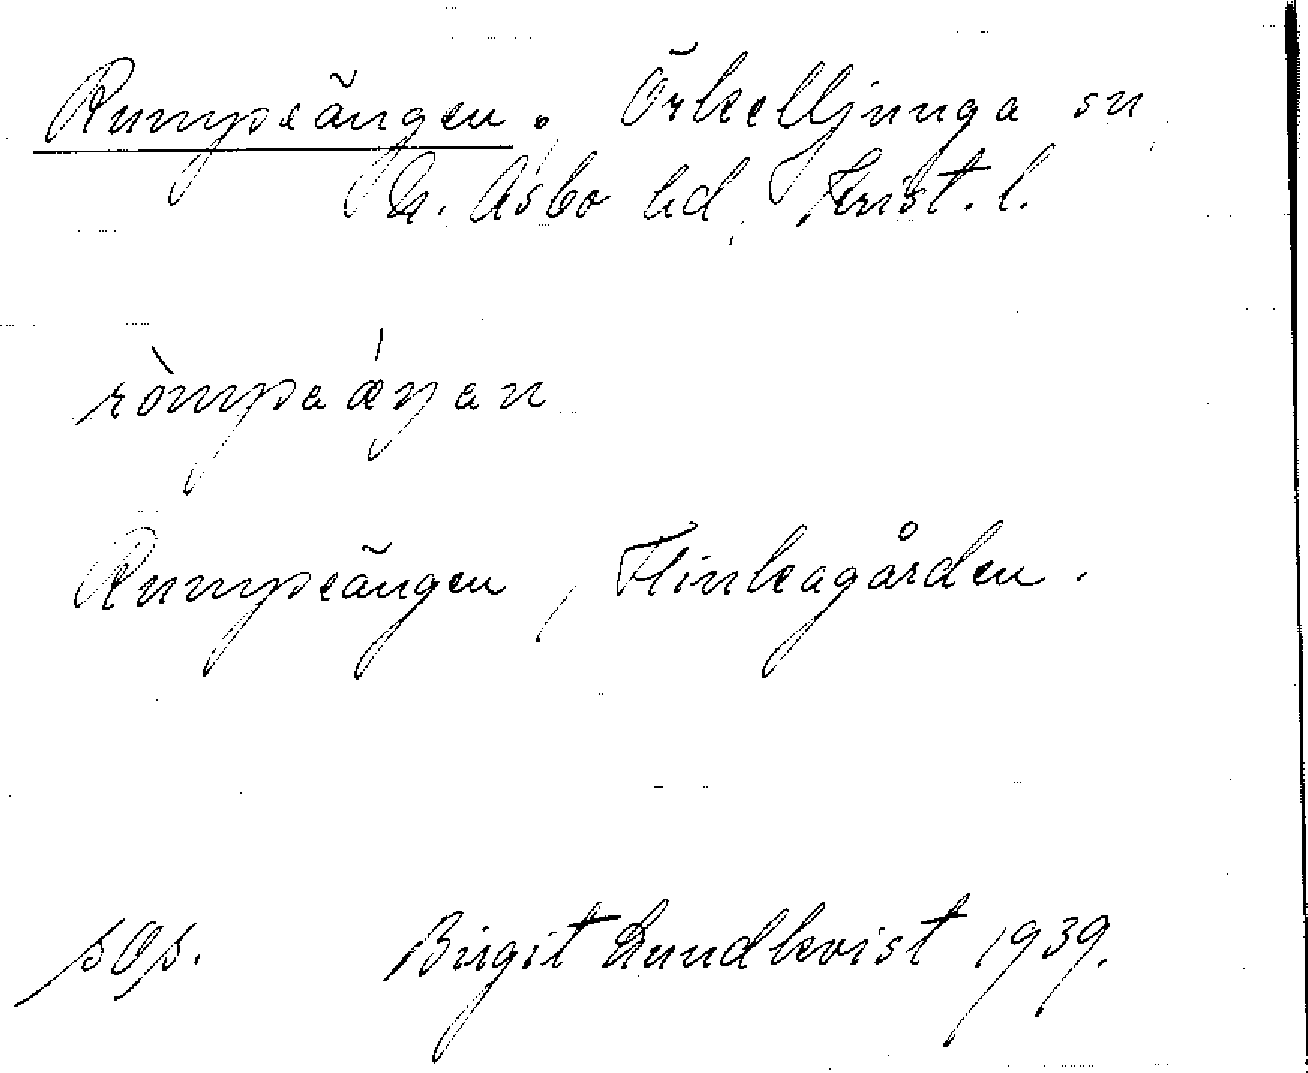 Rumpeängen. Örkelljunga sn
N. Åsbo hd. Krist. l.
ròmpaǽŋan
Rumpeängen, Flinkagården.
sgs. Birgit Lundkvist 1939.